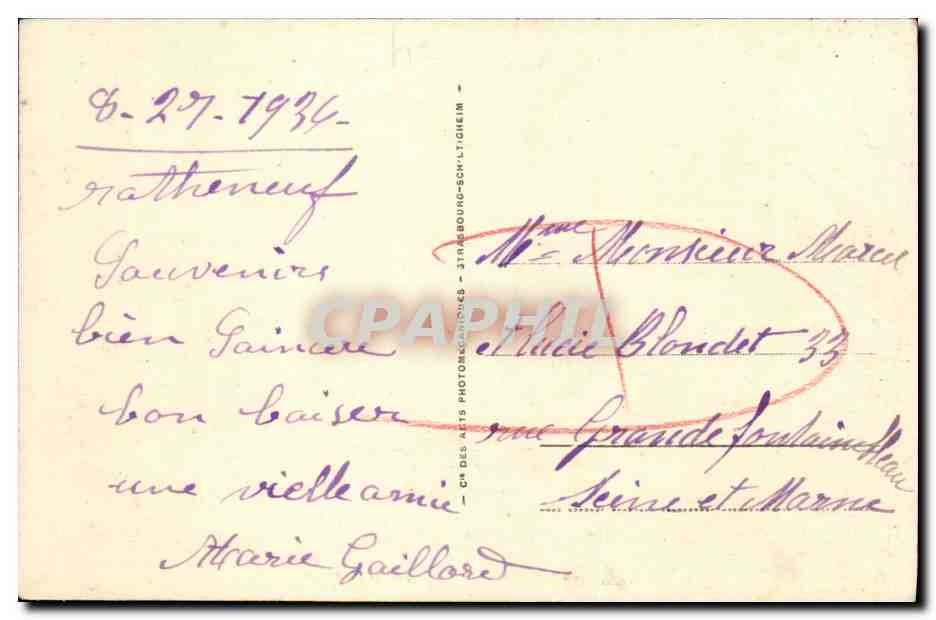 8-27-1934-
ratheneuf
Souvenirs
bien
bon baiser
une vielle amie
Marie Gaillard
Cie DES ARTS PHOTOMECANIQUES - STRASBOURG-SCHILTIGHEIM -
Mme Monsieur Marcel
Blondet 33
rue Grande fontainebleau
Seine et Marne
CPAPHIL